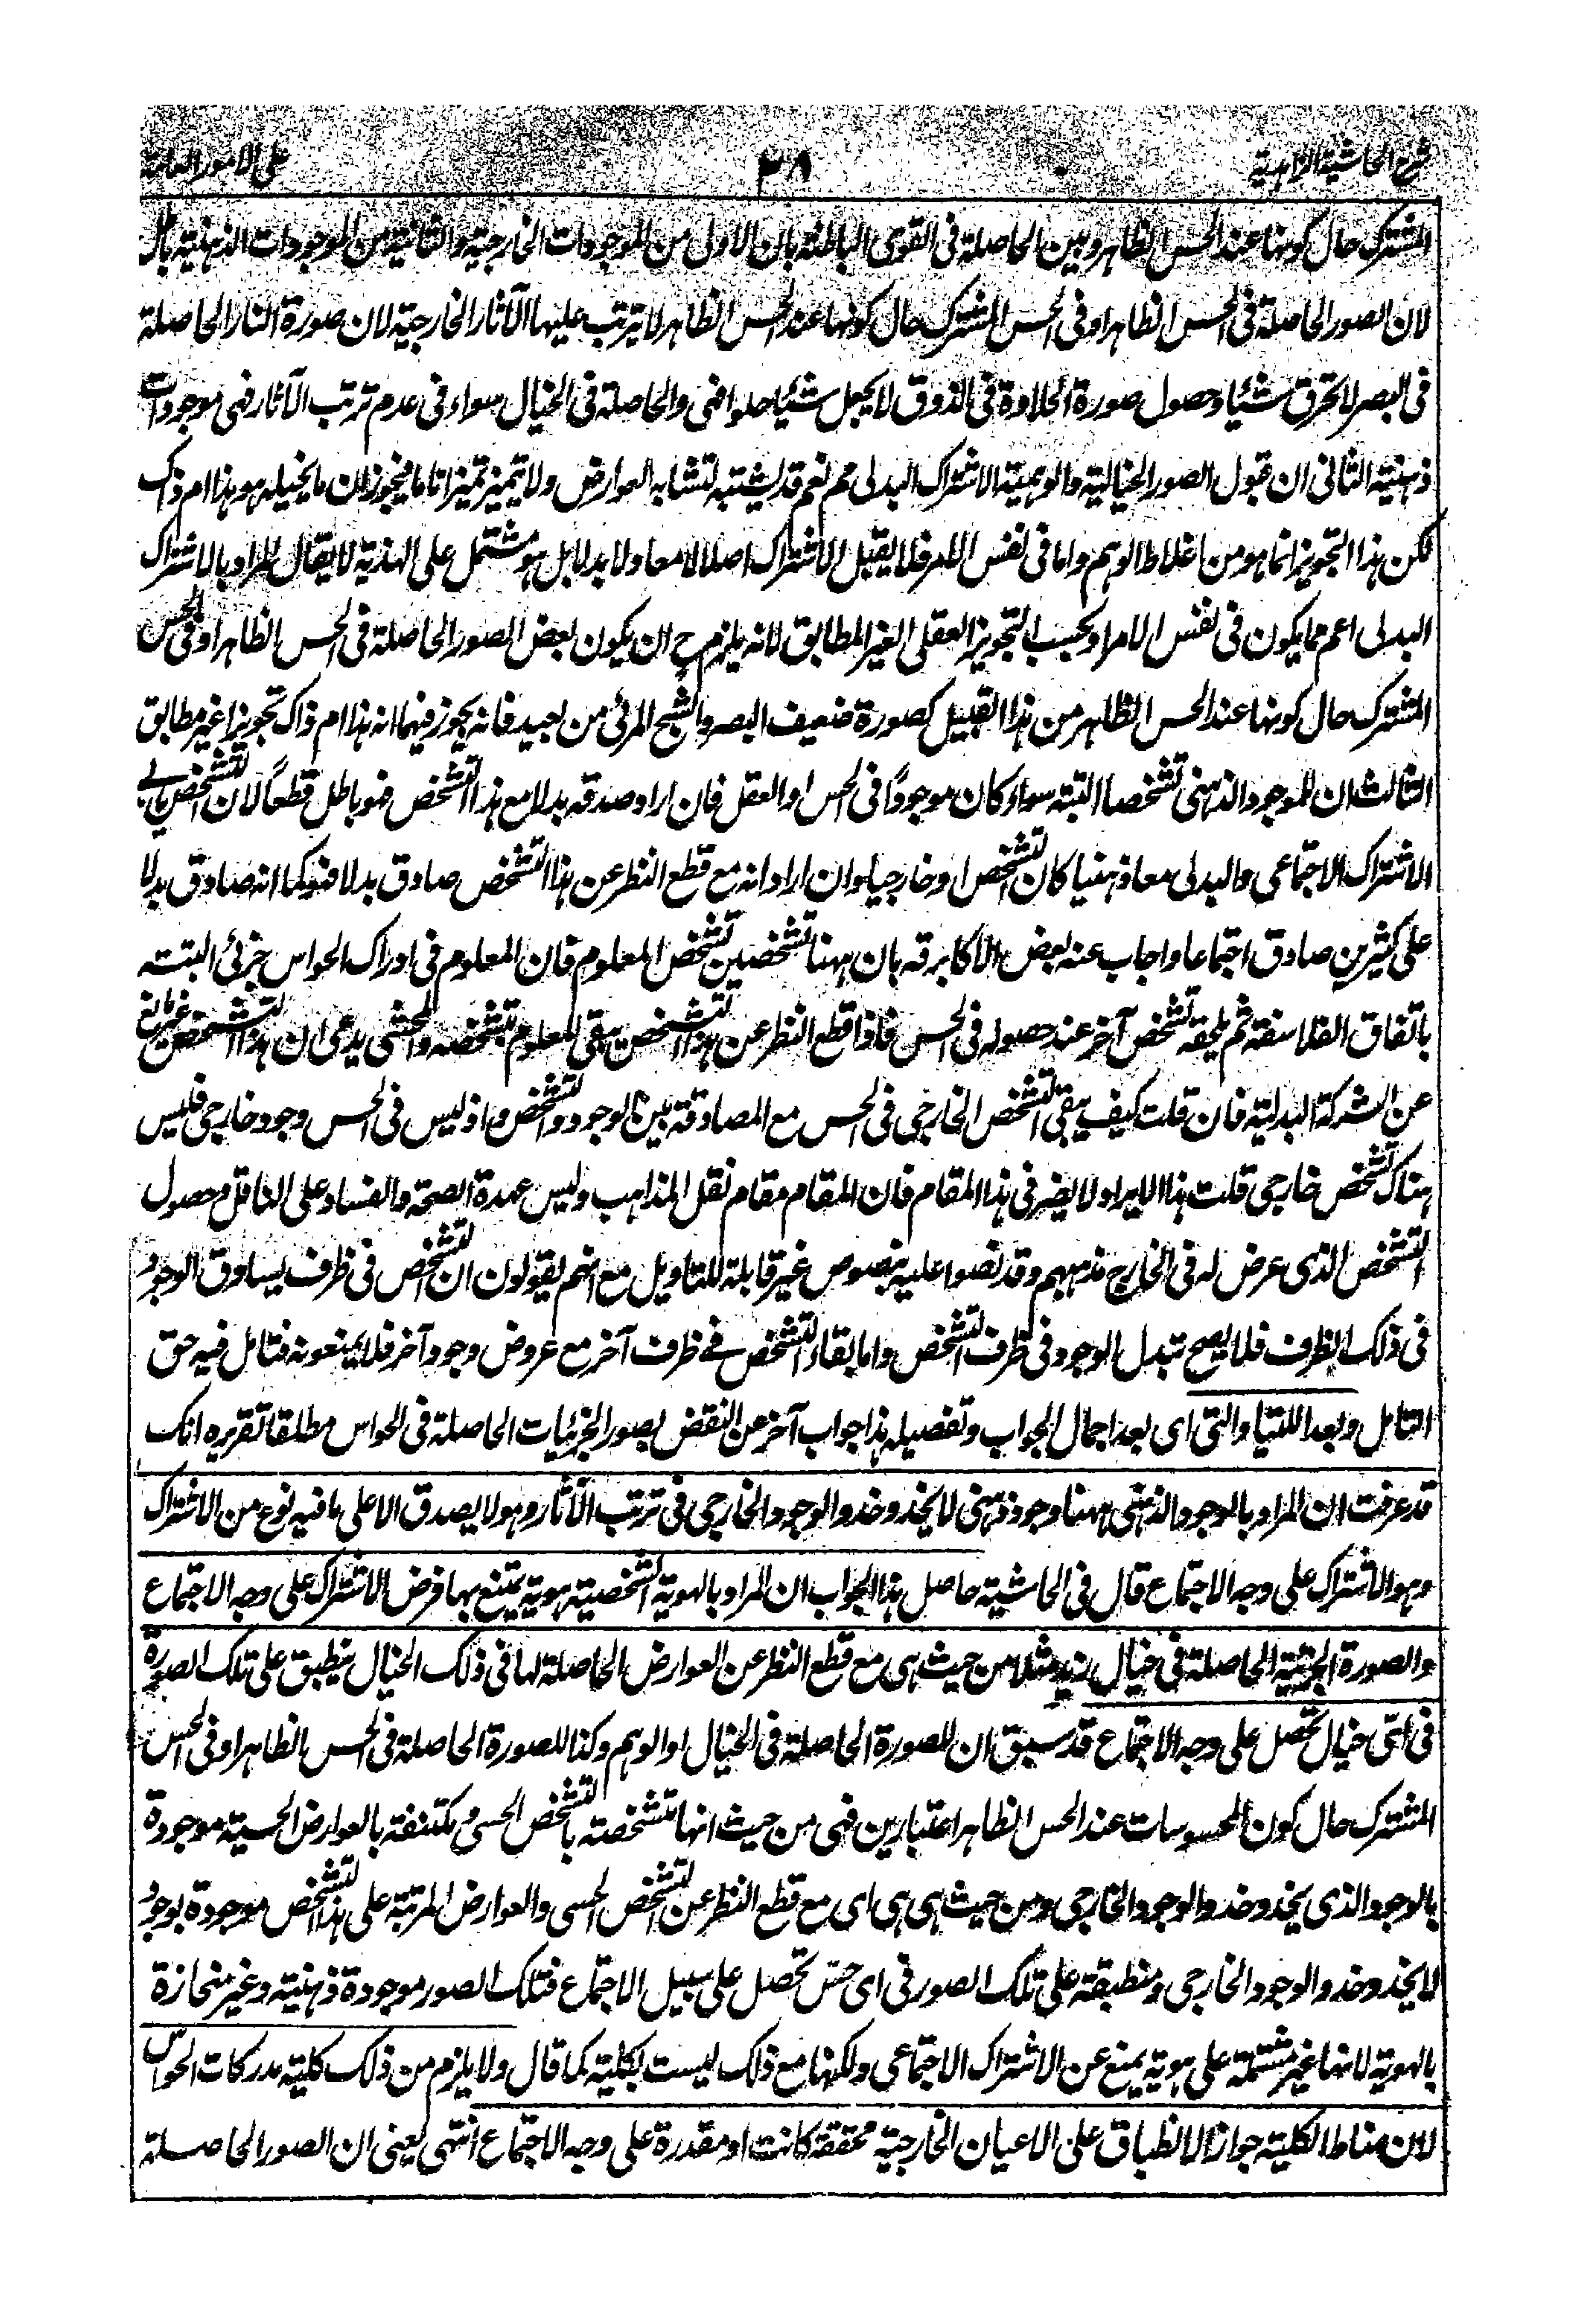 شرح الحاشية الزاهدية ٣٨ على الامور العامة
المشترك حال كونها عند الحس الظاهر وبين الحاصلة فى القوى الباطنة بان الاولى من الموجودات الخارجية والثانية من الموجودات الذهنية باطل
لان الصور الحاصلة فى الحس الظاهر او فى الحس المشترك حال كونها عند الحس الظاهر لا يترتب عليها الآثار الخارجية لان صورة النار الحاصلة
فى البصر لا تحرق شيئا وحصول صورة الحلاوة فى الذوق لا يجعل شيئا حلوا فهى والحاصلة فى الخيال سواء فى عدم ترتب الآثار فهى موجودات
ذهنية الثانى ان قبول الصور الخيالية والوهمية الاشتراك البدلى مم نعم قد يشتبه لتشابه العوارض ولا يتميز تميزا تاما فيجوز ان ما يخيله هو هذا ام ذاك
لكن هذا التجويز انما هو من اغلاط الوهم واما فى نفس الامر فلا يقبل الاشتراك اصلا لا معا ولا بدلا بل هو مشتمل على الهذية لا يقال المراد بالاشتراك
البدلى اعم مما يكون فى نفس الامر او بحسب التجويز العقلى الغير المطابق لانه يلزم ح ان يكون بعض الصور الحاصلة فى الحس الظاهر او فى الحس
المشترك حال كونها عند الحس الظاهر من هذا القبيل كصورة ضعيف البصر والشبح المرئى من بعيد فانه يجوز فيهما انه هذا ام ذاك تجويزا غير مطابق
الثالث ان للموجود الذهنى تشخصا البتة سواء كان موجودًا فى الحس او العقل فان اراد صدقه بدلا مع هذا التشخص فهو باطل قطعاً لان التشخص يابى
الاشتراك الاجتماعى والبدلى معا ذهنيا كان التشخص او خارجيا وان اراد انه مع قطع النظر عن هذا التشخص صادق بدلا فهو كما انه صادق بدلا
على كثيرين صادق اجتماعا واجاب عنه بعض الاكابر قه بان ههنا تشخصين تشخص المعلوم فان المعلوم فى ادراك الحواس جزئى البتة
باتفاق الفلاسفة ثم يلحقه تشخص آخر عند حصوله فى الحس فاذا قطع النظر عن هذا التشخص يبقى المعلوم بتشخصه والمحشى يدعى ان هذا التشخص غير مانع
عن الشركة البدلية فان قلت كيف يبقى التشخص الخارجى فى الحس مع المصادقة بين الوجود والتشخص واذ ليس فى الحس وجود خارجى فليس
هناك تشخص خارجى قلت هذا الايراد لا يضر فى هذا المقام فان المقام مقام نقل المذاهب وليس عهدة الصحة والفساد على الناقل وحصول
التشخص الذى عرض له فى الخارج مذهبهم وقد نصوا عليه بنصوص غير قابلة للتاويل مع انهم يقولون ان التشخص فى ظرف يساوق الوجود
فى ذلك الظرف فلا يصح تبدل الوجود فى ظرف التشخص واما بقاء التشخص فى ظرف آخر مع عروض وجود آخر فلا يمنعونه فتامل فيه حق
التامل وبعد اللتيا والتى اى بعد اجمال الجواب وتفصيله هذا جواب آخر عن النقض بصور الجزئيات الحاصلة فى الحواس مطلقا تقريره انك
قد عرفت ان المراد بالوجود الذهنى ههنا وجود ذهنى لا يحذو حذو الوجود الخارجى فى ترتب الآثار وهو لا يصدق الا على ما فيه نوع من الاشتراك
وهو الاشتراك على وجه الاجتماع قال فى الحاشية حاصل هذا الجواب ان المراد بالهوية الشخصية هوية يمتنع بها فرض الاشتراك على وجه الاجتماع
والصورة الجزئية الحاصلة فى خيال زيد مثلا من حيث هى مع قطع النظر عن العوارض الحاصلة لها فى ذلك الخيال ينطبق على تلك الصورة
فى اتى خيال تحصل على وجه الاجتماع قد سبق ان للصورة الحاصلة فى الخيال او الوهم وكذا للصورة الحاصلة فى الحس الظاهر او فى الحس
المشترك حال كون المحسوسات عند الحس الظاهر اعتبارين فهى من حيث انها متشخصة بالتشخص الحسى ومكتنفة بالعوارض الحسية موجودة
بالوجود الذى يحذو حذو الوجود الخارجى ومن حيث هى هى اى مع قطع النظر عن التشخص الحسى والعوارض المرتبة على هذا التشخص موجودة بوجود
لا يحذو حذو الوجود الخارجى ومنطبقة على تلك الصور فى اى حس تحصل على سبيل الاجتماع فتلك الصور موجودة ذهنية وغير منحازة
بالهوية لانها غير مشتملة على هوية يمنع عن الاشتراك الاجتماعى ولكنها مع ذلك ليست بكلية كما قال ولا يلزم من ذلك كلية مدركات الحواس
لان مناط الكلية جواز الانطباق على الاعيان الخارجية محققة كانت او مقدرة على وجه الاجتماع انتهى يعنى ان الصور الحاصلة